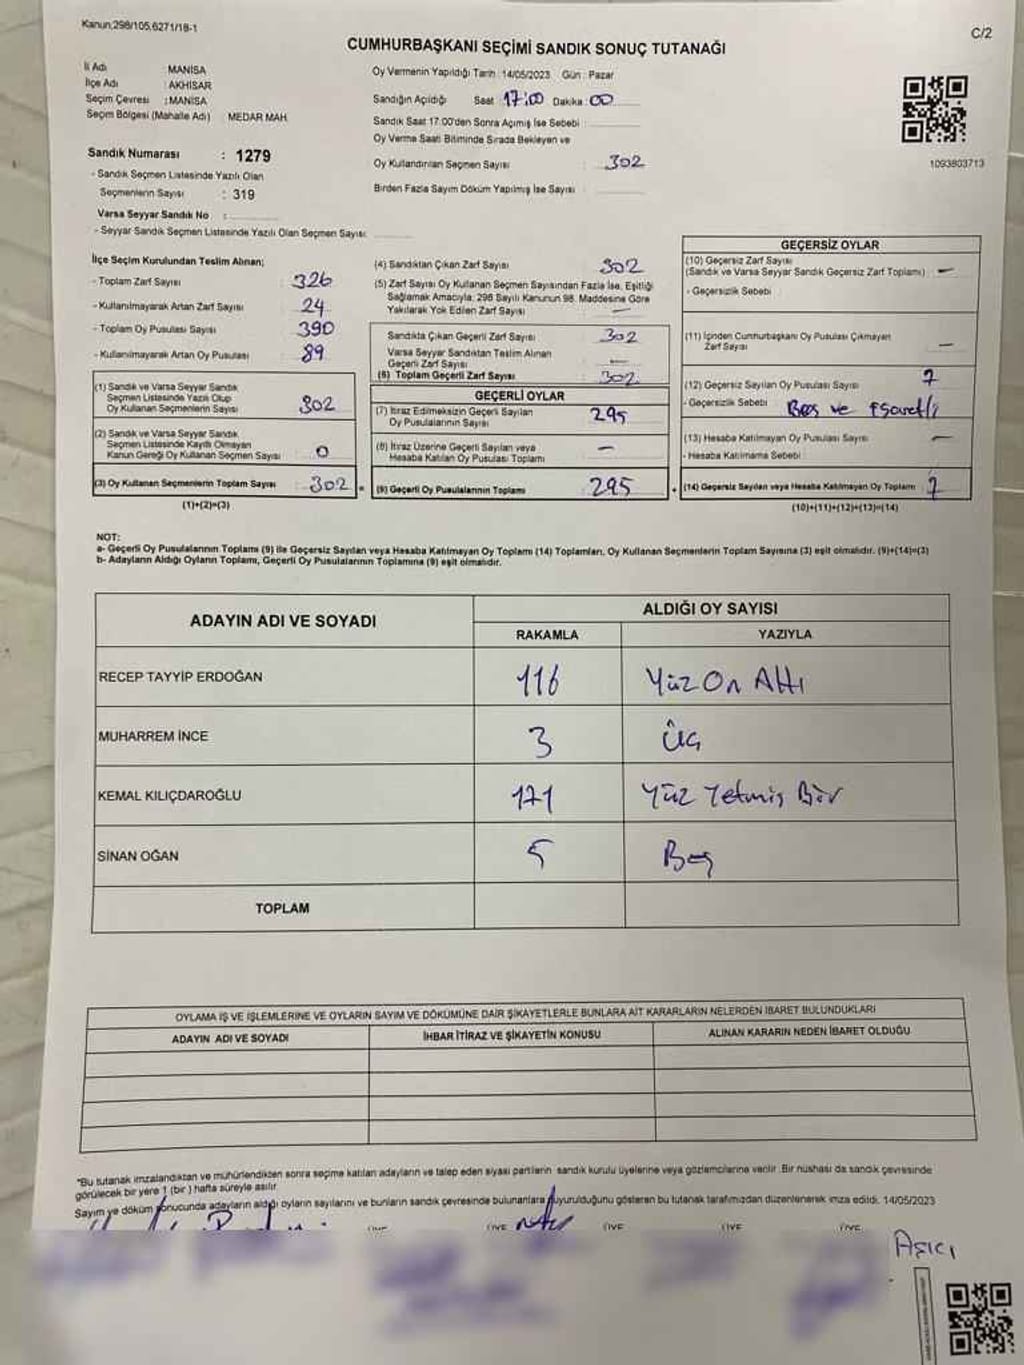 Kanun;298/105,6271/18-1
C/2
CUMHURBAŞKANI SEÇİMİ SANDIK SONUÇ TUTANAĞI
İl Adı : MANİSA
İlçe Adı : AKHİSAR
Seçim Çevresi : MANİSA
Seçim Bölgesi (Mahalle Adı) : MEDAR MAH.
Sandık Numarası : 1279
- Sandık Seçmen Listesinde Yazılı Olan
Seçmenlerin Sayısı : 319
Varsa Seyyar Sandık No :
- Seyyar Sandık Seçmen Listesinde Yazılı Olan Seçmen Sayısı:
Oy Vermenin Yapıldığı Tarih : 14/05/2023 Gün : Pazar
Sandığın Açıldığı Saat : 17:00 Dakika : 00
Sandık Saat 17:00'den Sonra Açımış İse Sebebi :
Oy Verme Saati Bitiminde Sırada Bekleyen ve
Oy Kullandırılan Seçmen Sayısı : 302
Birden Fazla Sayım Döküm Yapılmış İse Sayısı :
1093803713
İlçe Seçim Kurulundan Teslim Alınan;
- Toplam Zarf Sayısı : 326
- Kullanılmayarak Artan Zarf Sayısı : 24
- Toplam Oy Pusulası Sayısı : 390
- Kullanılmayarak Artan Oy Pusulası : 89
(1) Sandık ve Varsa Seyyar Sandık
Seçmen Listesinde Yazılı Olup
Oy Kullanan Seçmenlerin Sayısı : 302
(2) Sandık ve Varsa Seyyar Sandık
Seçmen Listesinde Kayıtlı Olmayan
Kanun Gereği Oy Kullanan Seçmen Sayısı : 0
(3) Oy Kullanan Seçmenlerin Toplam Sayısı : 302 =
(1)+(2)=(3)
(4) Sandıktan Çıkan Zarf Sayısı : 302
(5) Zarf Sayısı Oy Kullanan Seçmen Sayısından Fazla İse, Eşitliği
Sağlamak Amacıyla; 298 Sayılı Kanunun 98. Maddesine Göre
Yakılarak Yok Edilen Zarf Sayısı : —
Sandıkta Çıkan Geçerli Zarf Sayısı : 302
Varsa Seyyar Sandıktan Teslim Alınan
Geçerli Zarf Sayısı : —
(6) Toplam Geçerli Zarf Sayısı : 302
GEÇERLİ OYLAR
(7) İtiraz Edilmeksizin Geçerli Sayılan
Oy Pusulalarının Sayısı : 295
(8) İtiraz Üzerine Geçerli Sayılan veya
Hesaba Katılan Oy Pusulası Toplamı : —
(9) Geçerli Oy Pusulalarının Toplamı : 295 +
GEÇERSİZ OYLAR
(10) Geçersiz Zarf Sayısı
(Sandık ve Varsa Seyyar Sandık Geçersiz Zarf Toplamı) : —
- Geçersizlik Sebebi :
(11) İçinden Cumhurbaşkanı Oy Pusulası Çıkmayan
Zarf Sayısı : —
(12) Geçersiz Sayılan Oy Pusulası Sayısı : 7
- Geçersizlik Sebebi : Boş ve işaretli
(13) Hesaba Katılmayan Oy Pusulası Sayısı : —
- Hesaba Katılmama Sebebi :
(14) Geçersiz Sayılan veya Hesaba Katılmayan Oy Toplamı : 7
(10)+(11)+(12)+(13)=(14)
NOT:
a- Geçerli Oy Pusulalarının Toplamı (9) ile Geçersiz Sayılan veya Hesaba Katılmayan Oy Toplamı (14) Toplamları, Oy Kullanan Seçmenlerin Toplam Sayısına (3) eşit olmalıdır. (9)+(14)=(3)
b- Adayların Aldığı Oyların Toplamı, Geçerli Oy Pusulalarının Toplamına (9) eşit olmalıdır.
ADAYIN ADI VE SOYADI
ALDIĞI OY SAYISI
RAKAMLA YAZIYLA
RECEP TAYYİP ERDOĞAN 116 Yüz On Altı
MUHARREM İNCE 3 Üç
KEMAL KILIÇDAROĞLU 171 Yüz Yetmiş Bir
SİNAN OĞAN 5 Beş
TOPLAM
OYLAMA İŞ VE İŞLEMLERİNE VE OYLARIN SAYIM VE DÖKÜMÜNE DAİR ŞİKAYETLERLE BUNLARA AİT KARARLARIN NELERDEN İBARET BULUNDUKLARI
ADAYIN ADI VE SOYADI İHBAR İTİRAZ VE ŞİKAYETİN KONUSU ALINAN KARARIN NEDEN İBARET OLDUĞU
*Bu tutanak imzalandıktan ve mühürlendikten sonra seçime katılan adayların ve talep eden siyasi partilerin sandık kurulu üyelerine veya gözlemcilerine verilir. Bir nüshası da sandık çevresinde
görülecek bir yere 1 (bir) hafta süreyle asılır.
Sayım ve döküm sonucunda adayların aldığı oyların sayılarını ve bunların sandık çevresinde bulunanlara duyurulduğunu gösteren bu tutanak tarafımızdan düzenlenerek imza edildi. 14/05/2023
ÜYE ÜYE ÜYE ÜYE